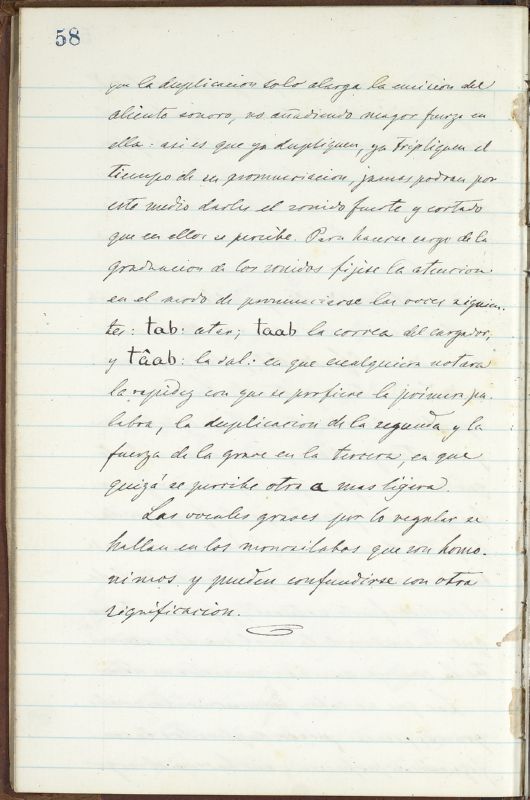 58
que la duplicacion solo alarga la emicion del
aliento sonoro, no añadiendo mayor fuerza en
ella: asi es que ya dupliquen, ya tripliquen el
tiempo de su pronunciacion, jamas podran por
este medio darles el sonido fuerte y cortado
que en ellos se percibe. Para hacerse cargo de la
graduacion de los sonidos fijese la atencion
en el modo de pronunciarse las voces siguien-
tes: tab: atar; taab la correa del cargador,
y tâab: la sal: en que cualquiera notara
la rapidez con que se profiere la primera pa-
labra, la duplicacion de la segunda y la
fuerza de la grave en la tercera, en que
quizá se percibe otra a mas ligera.
Las vocales graves por lo regular se
hallan en los monosilabos que son homo-
nimos y pueden confundirse con otra
significacion.